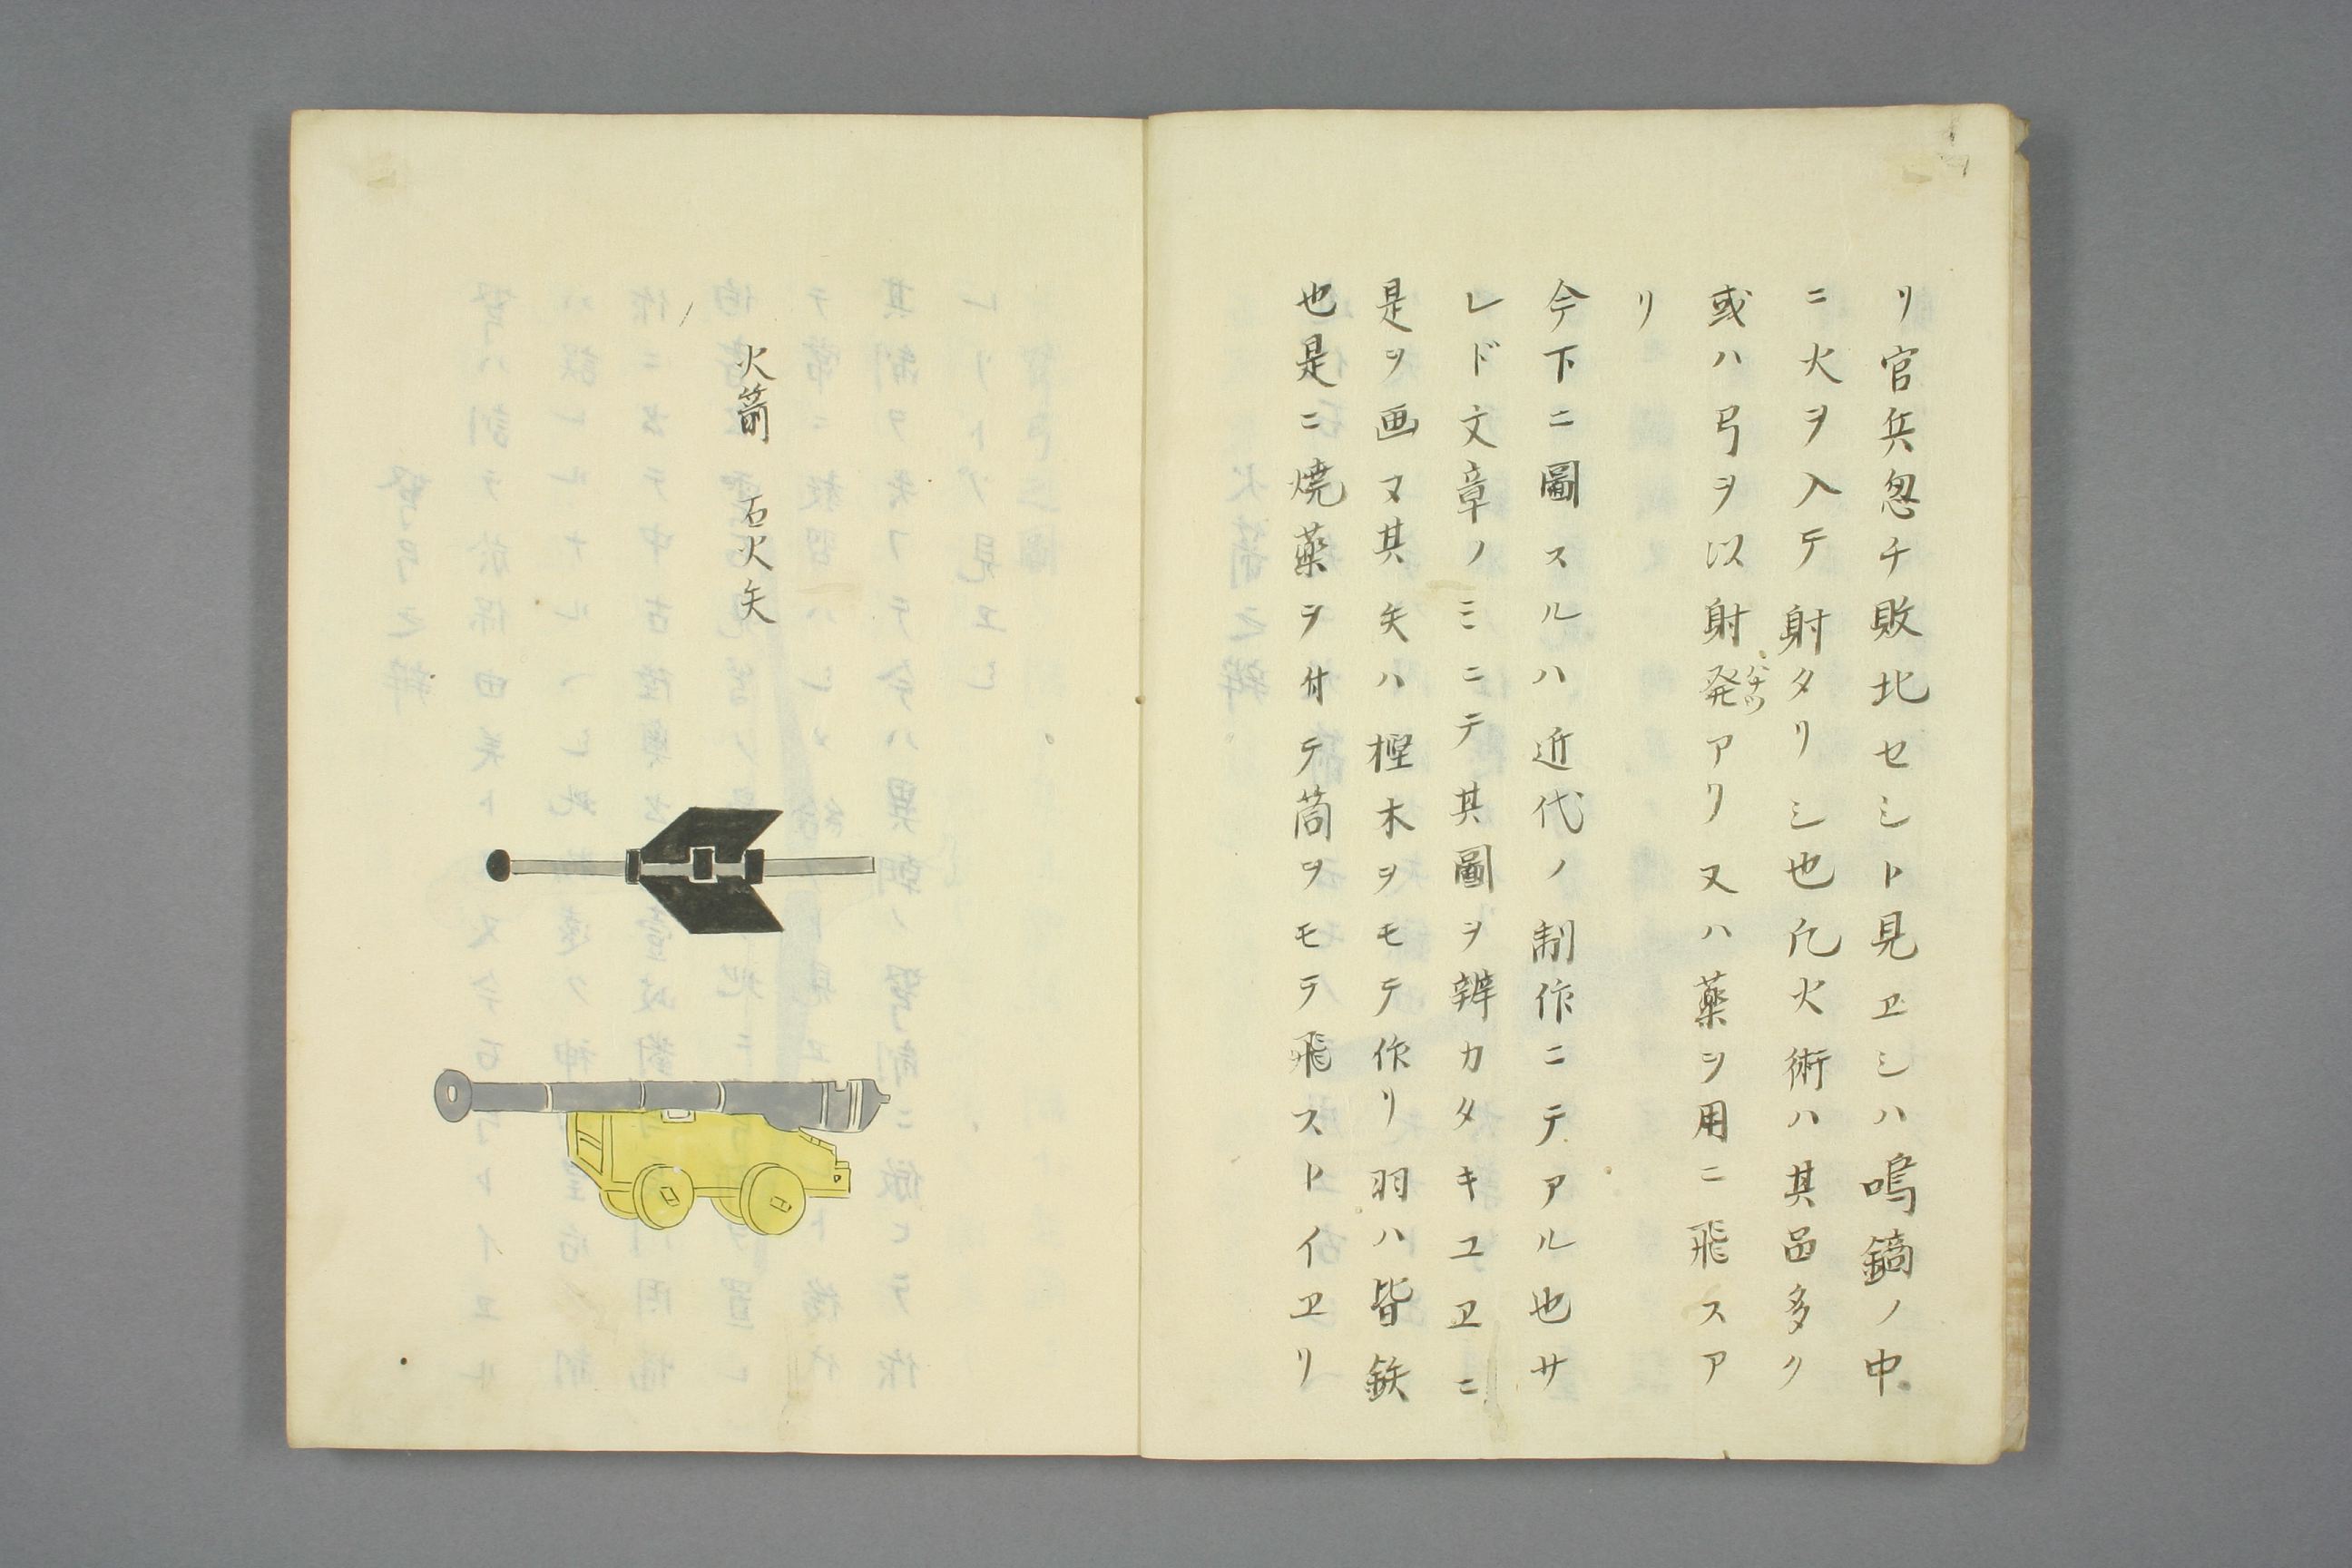 リ官兵忽チ敗北セシト見ヱシハ鳴鏑ノ中
ニ火ヲ入テ射タリシ也凡火術ハ其品多ク
或ハ弓ヲ以射発アリ又ハ薬ヲ用ニ飛スア
リ
今下ニ圖スルハ近代ノ制作ニテアル也サ
レド文章ノミニテ其圖ヲ辨カタキユヱニ
是ヲ画ヌ其矢ハ樫木ヲモテ作リ羽ハ皆鉄
也是ニ焼薬ヲ付テ筒ヲモテ飛ストイヱリ
火箭 石火矢